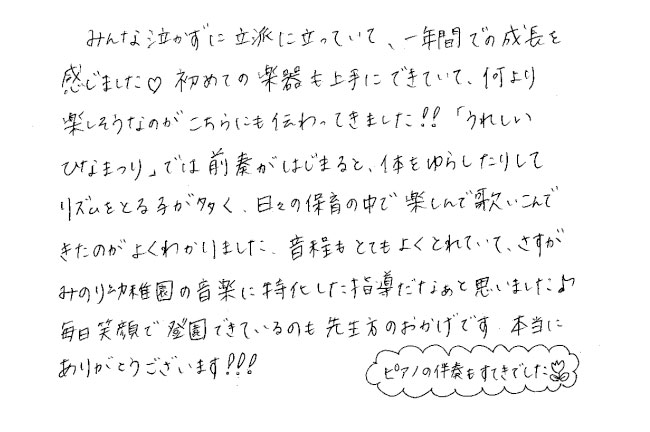 みんな泣かずに立派に立っていて、一年間での成長を
感じました♡ 初めての楽器も上手にできていて、何より
楽しそうなのがこちらにも伝わってきました!!「うれしい
ひなまつり」では前奏がはじまると、体をゆらしたりして
リズムをとる子が多く、日々の保育の中で楽しんで歌いこんで
きたのがよくわかりました。音程もとてもよくとれていて、さすが
みのり幼稚園の音楽に特化した指導だなぁと思いました♪
毎日笑顔で登園できているのも先生方のおかげです。本当に
ありがとうございます!!!
ピアノの伴奏もすてきでした